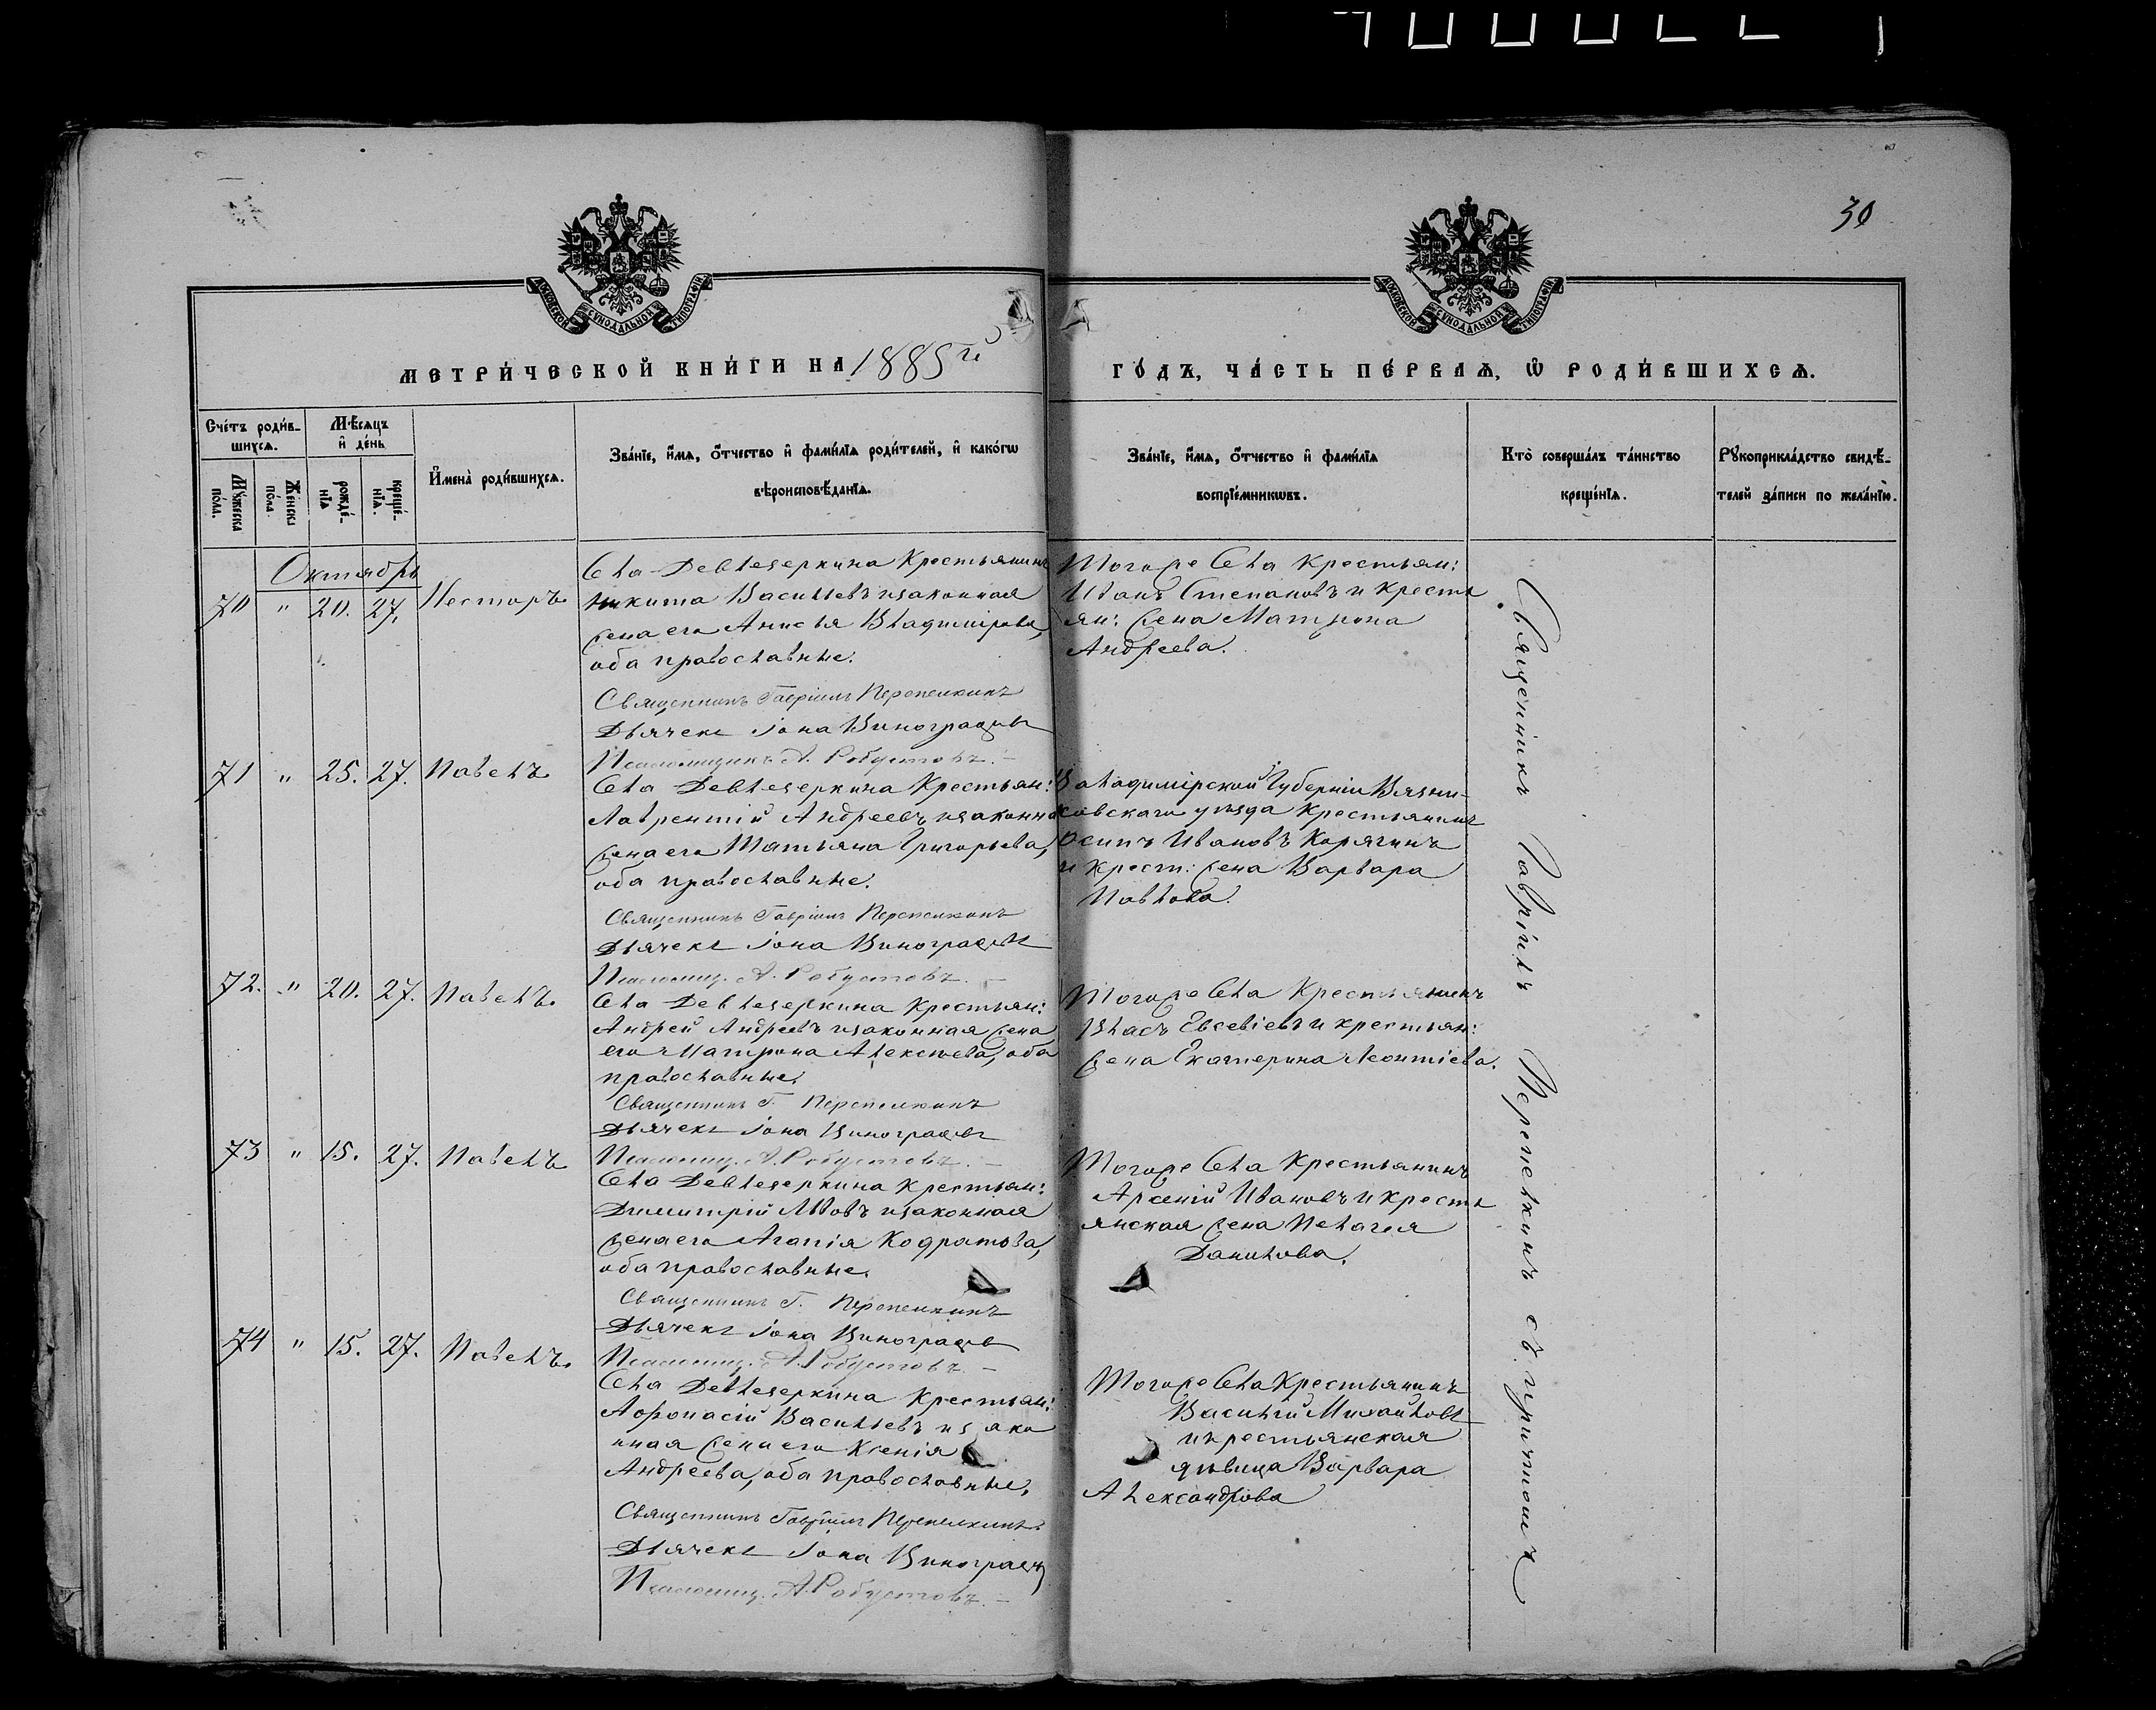 30
МОСКОВСКОЙ СѴНОДАЛЬНОЙ ТИПОГРАФІИ
МОСКОВСКОЙ СѴНОДАЛЬНОЙ ТИПОГРАФІИ
МЕТРИ́ЧЕСКОЙ КНИ́ГИ НА 1885й
ГО́ДЪ, ЧА́СТЬ ПЕ́РВАѦ, Ѡ҆ РОДИ́ВШИХСѦ.
Сче́тъ роди́в-
шихсѧ.
Мѣсяцъ
и҆ де́нь
Мꙋ́жеска по́ла.
Же́нска по́ла.
рожде́-
нїѧ
креще́-
нїѧ.
И҆мена̀ роди́вшихсѧ.
Зва́нїе, и҆́мѧ, ѻ҆́тчество и҆ фами́лїѧ роди́телей, и҆ како́гѡ
вѣроисповѣ́данїѧ.
Зва́нїе, и҆́мѧ, ѻ҆́тчество и҆ фами́лїѧ
воспрїе́мникѡвъ.
Кто̀ соверша́лъ та́инство
креще́нїѧ.
Рꙋкоприкла́дство свидѣ́-
телей за́писи по жела́нїю.
Октябрь
70 " 20. 27. Несторъ
Села Девлезеркина Крестьянинъ
Никита Васильевъ изаконная
жена его Анисья Владимірова,
оба православные.
Священникъ Гавріилъ Перепелкинъ
Дьячекъ Іона Виноградовъ
Псаломщикъ А. Робустовъ. –
Тогоже Села Крестьян:
Иванъ Степановъ и Кресть
ян: жена Матрона
Андреева.
71 " 25. 27. Павелъ
Села Девлезеркина Крестьян:
Лаврентій Андреевъ изаконная
жена его Татьяна Григорьева,
оба православные.
Священникъ Гавріилъ Перепелкинъ
Дьячекъ Іона Виноградовъ
Псаломщ. А. Робустовъ. –
Владимірской Губерніи Вязни-
ковскаго уѣзда Крестьянинъ
Осипъ Ивановъ Корягинъ
и Крест: жена Варвара
Павлова.
72. " 20. 27. Павелъ.
Села Девлезеркина Крестьян:
Андрей Андреевъ изаконная жена
его Матрона Алексѣева, оба
православные.
Священникъ Г. Перепелкинъ
Дьячекъ Іона Виноградовъ
Псаломщ. А. Робустовъ. –
Тогоже Села Крестьянинъ
Власъ Евсевіевъ и крестьян:
жена Екатерина Леонтіева.
73 " 15. 27. Павелъ
Села Девлезеркина Крестьян:
Димитрій Львовъ изаконная
жена его Агапія Кодратова,
оба православные.
Священникъ Г. Перепелкинъ
Дьячекъ Іона Виноградовъ
Псаломщ. А. Робустовъ. –
Тогоже Села Крестьянинъ
Арсеній Ивановъ и Кресть
янская жена Пелагея
Данилова.
74 " 15. 27. Павелъ.
Села Девлезеркина Крестьян:
Афонасій Васильевъ и зако
нная жена его Ксенія
Андреева, оба православные.
Священникъ Гавріилъ Перепелкинъ
Дьячекъ Іона Виноградовъ
Псаломщ. А. Робустовъ. –
Тогоже Села Крестьянинъ
Василій Михайловъ
и крестьянская
дѣвица Варвара
Александрова
Священникъ Гавріилъ Перепелкинъ съ причтомъ